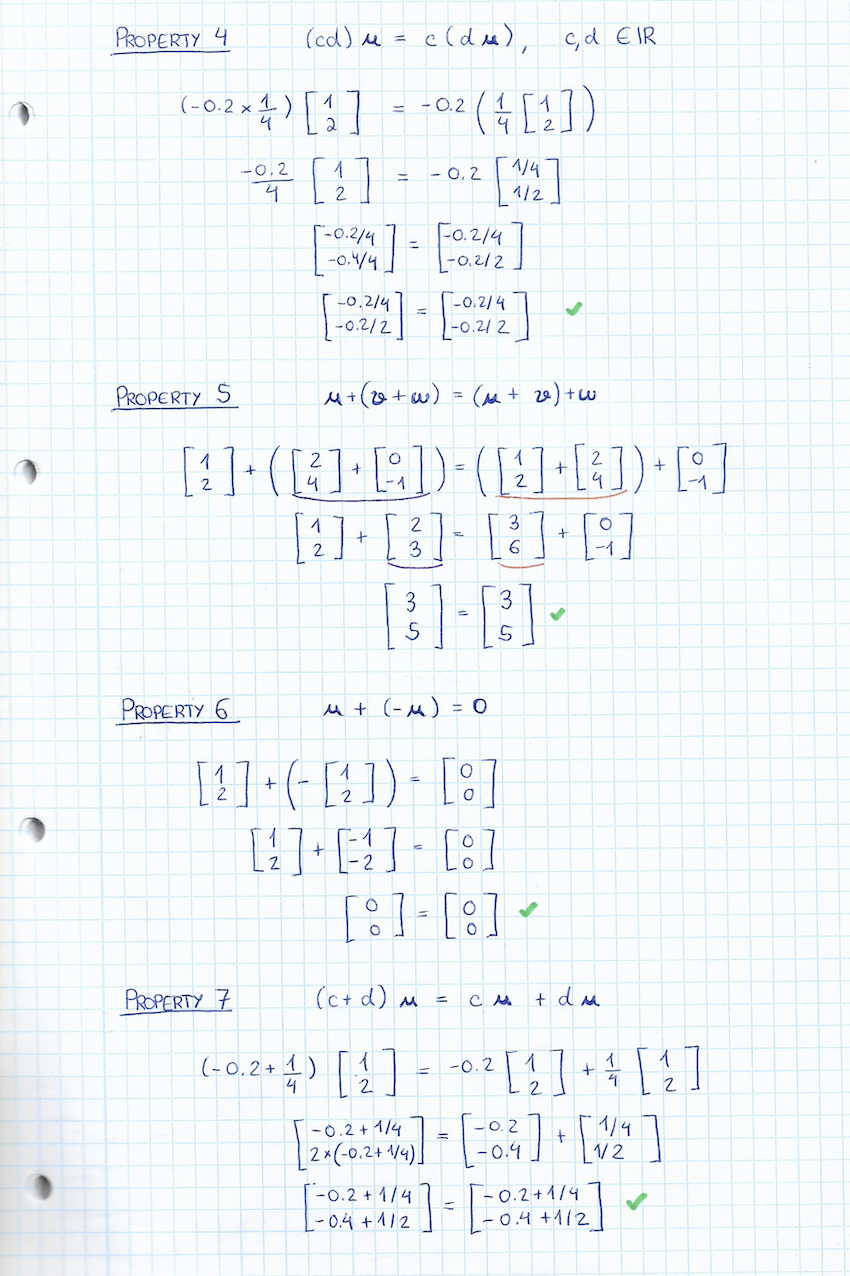 PROPERTY 4 (cd) u = c(d u), c,d ∈ ℝ
(-0.2 × 1/4) [1 2] = -0.2 (1/4 [1 2])
-0.2/4 [1 2] = -0.2 [1/4 1/2]
[-0.2/4 -0.4/4] = [-0.2/4 -0.2/2]
[-0.2/4 -0.2/2] = [-0.2/4 -0.2/2] ✓
PROPERTY 5 u+(v+w) = (u+ v)+w
[1 2] + ([2 4] + [0 -1]) = ([1 2] + [2 4]) + [0 -1]
[1 2] + [2 3] = [3 6] + [0 -1]
[3 5] = [3 5] ✓
PROPERTY 6 u + (-u) = 0
[1 2] + (- [1 2]) = [0 0]
[1 2] + [-1 -2] = [0 0]
[0 0] = [0 0] ✓
PROPERTY 7 (c+d) u = c u + d u
(-0.2+ 1/4) [1 2] = -0.2 [1 2] + 1/4 [1 2]
[-0.2+1/4 2×(-0.2+1/4)] = [-0.2 -0.4] + [1/4 1/2]
[-0.2+1/4 -0.4+1/2] = [-0.2+1/4 -0.4+1/2] ✓